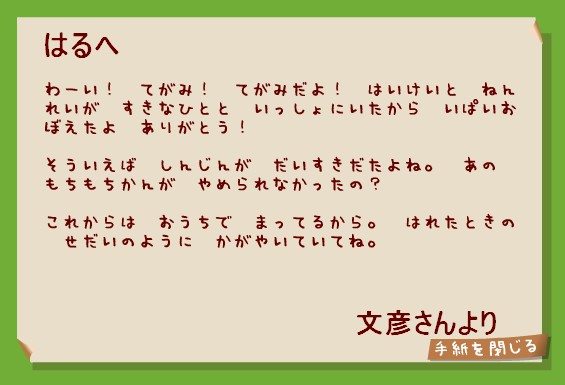 はるへ
わーい！　てがみ！　てがみだよ！　はいけいと　ねん
れいが　すきなひとと　いっしょにいたから　いぱいお
ぼえたよ　ありがとう！
そういえば　しんじんが　だいすきだたよね。　あの
もちもちかんが　やめられなかったの？
これからは　おうちで　まってるから。　はれたときの
　せだいのように　かがやいていてね。
文彦さんより
手紙を閉じる